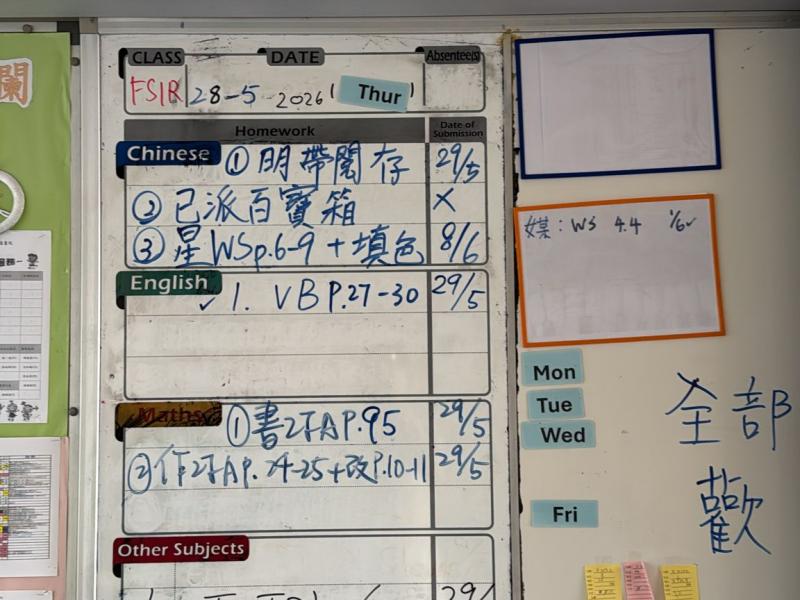 CLASS DATE Absentee(s)
28-5 2026 ( Thur )
Homework Date of Submission
Chinese ① 明帶閱存 29/5
② 已派百寶箱 X
③ 星WSp.6-9 + 填色 8/6
English
✓ 1. VB P.27-30 29/5
Maths ① 書2下A P.95 29/5
② 作2下A P.24-25+改P.10-11 29/5
Other Subjects
媒: WS 4.4 1/6✓
Mon
Tue
Wed
Fri
全部
歡